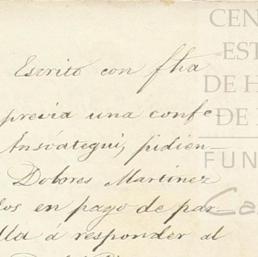 Escrito con fha
previa una confe
Ansóategui, pidien-
Dolores Martinez
los en pago de par-
lla á responder al
CEN
EST
DE H
DE
FUN